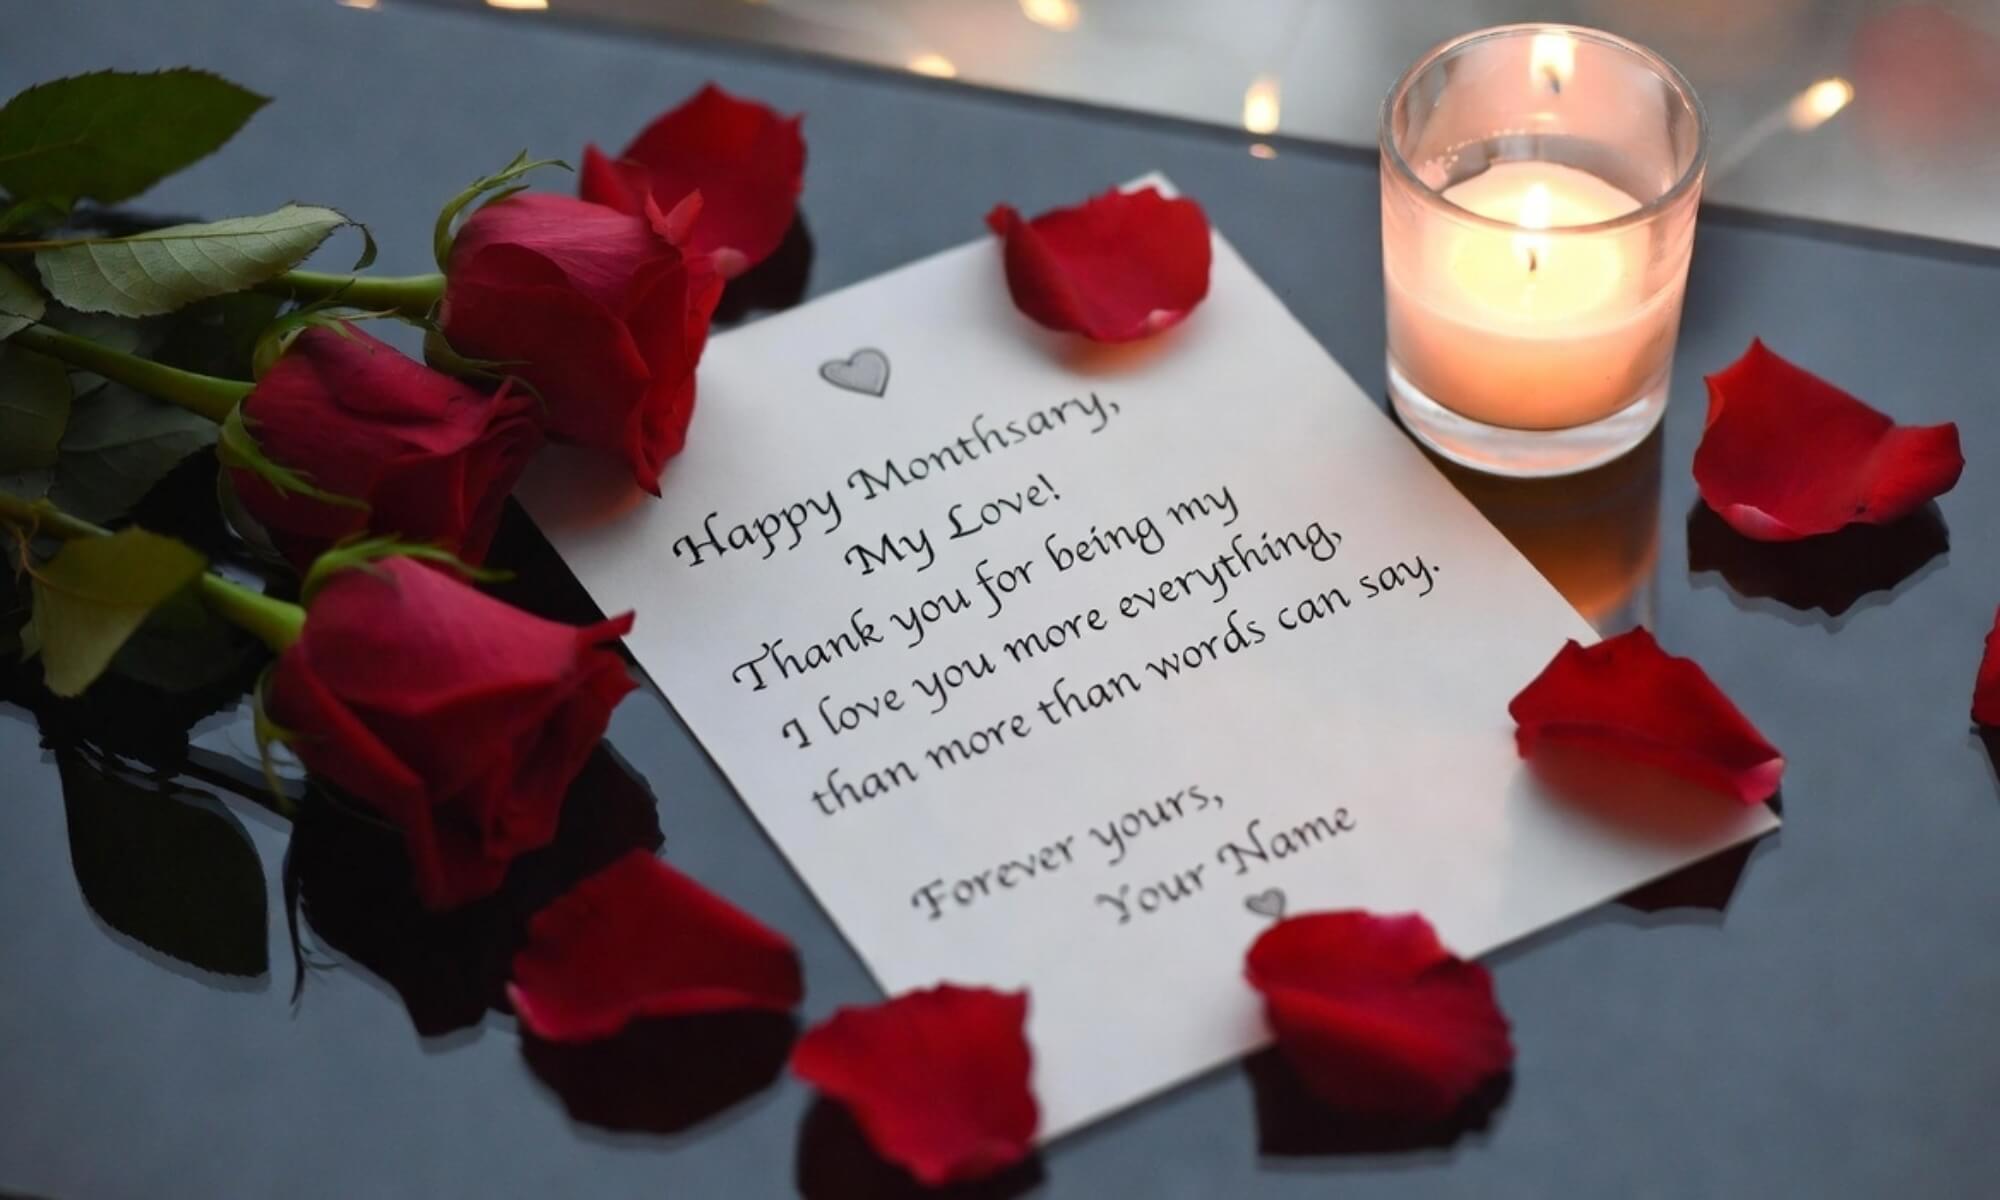 Happy Monthsary,
My Love!
Thank you for being my
I love you more everything,
than more than words can say.
Forever yours,
Your Name